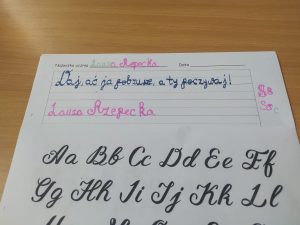 Nazwisko ucznia Lauza Rzepecka Data
Daj, ać ja pobruszę, a ty poczywaj!
Lauza Rzepecka
Aa Bb Cc Dd Ee Ff
Gg Hh Ii Jj Kk Ll